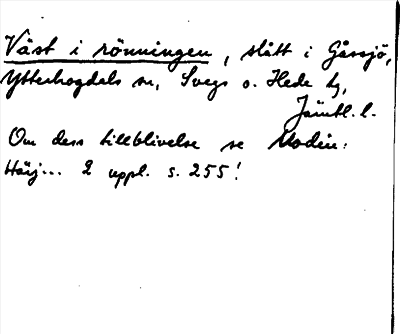 Väst i rönningen, slått i Gåssjö,
Ytterhogdals sn, Svegs o. Hede tg,
Jämtl. l.
Om dess tillblivelse se Modin:
Härj... 2 uppl. s. 255!